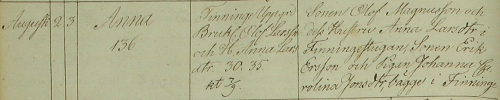 Augusti 2. 3. Anna
136.
Finninge Uppgrd
Bruk. Olof Larsson
och H. Anna Lars
dtr. 30. 35.
kt 7/9.
Sonen Olof Magnusson och
dess Hustru Anna Larsdtr i
Finningestugan, Sonen Erik
Ersson och Pigan Johanna Ca
rolina Jonsdtr bägge i Finninge